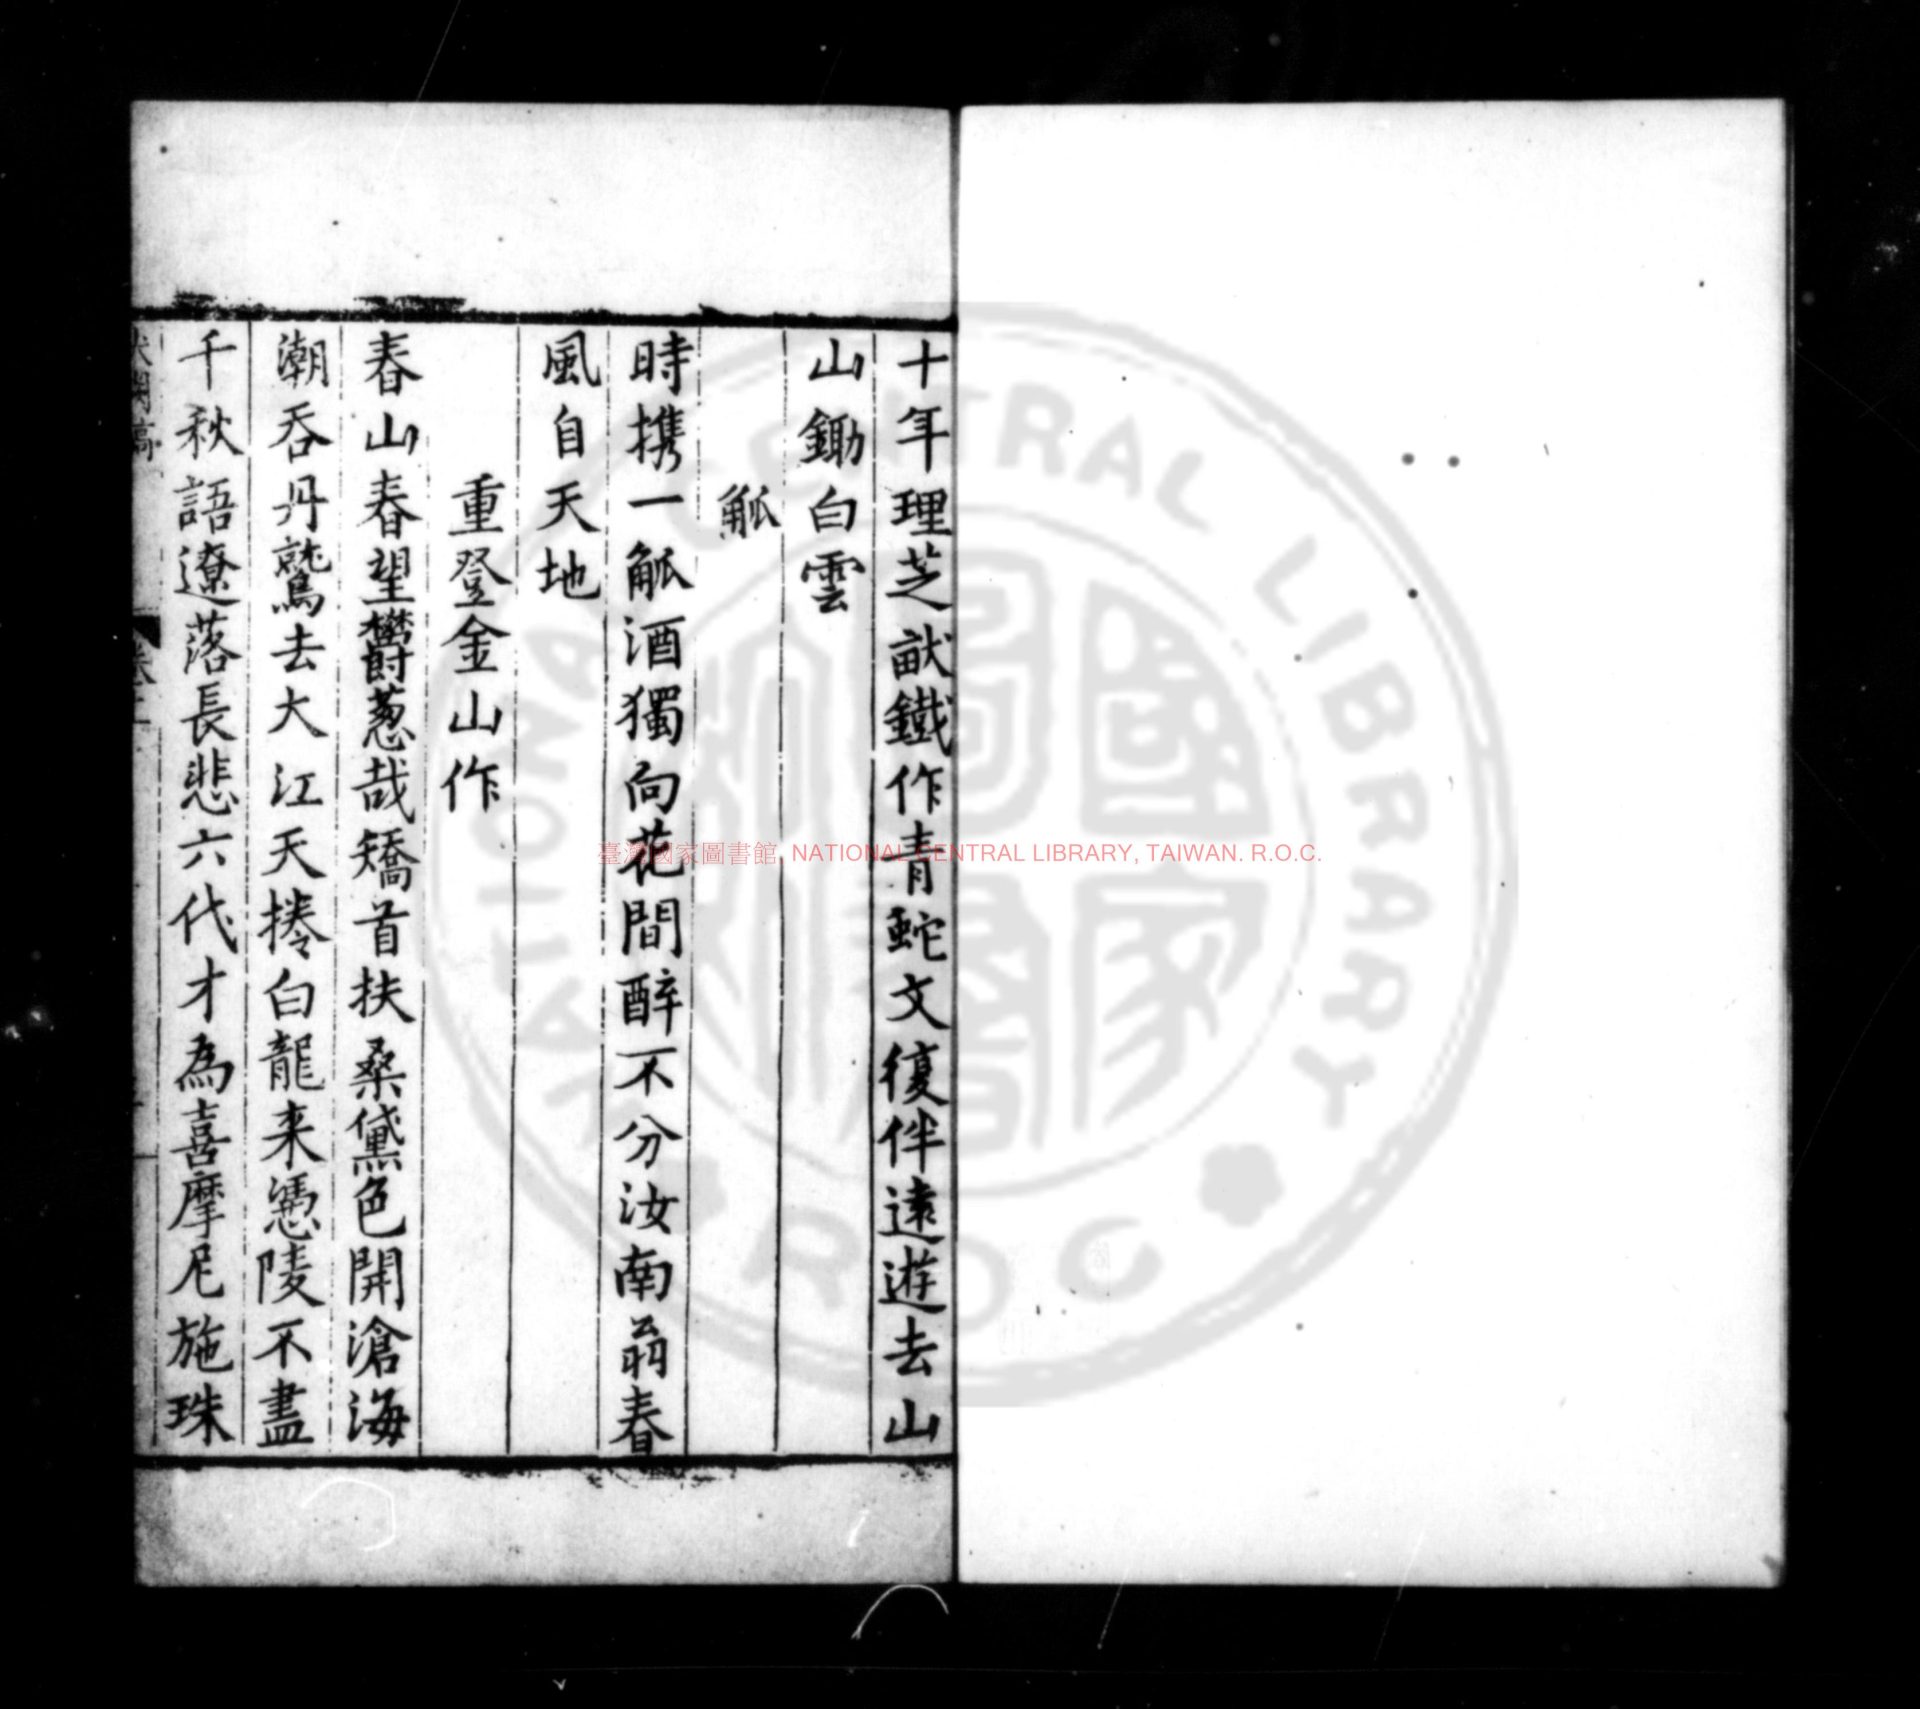 十年理芝畝鐵作青蛇文復伴遠遊去山
山鋤白雲
觚
時携一觚酒獨向花間醉不分汝南翁春
風自天地
重登金山作
春山春望欝葱哉矯首扶桑黛色開滄海
潮吞丹鷲去大江天捲白龍来憑陵不盡
千秋語遼落長悲六代才為喜摩尼施珠
臺灣國家圖書館, NATIONAL CENTRAL LIBRARY, TAIWAN. R.O.C.
NATIONAL CENTRAL LIBRARY
R O C